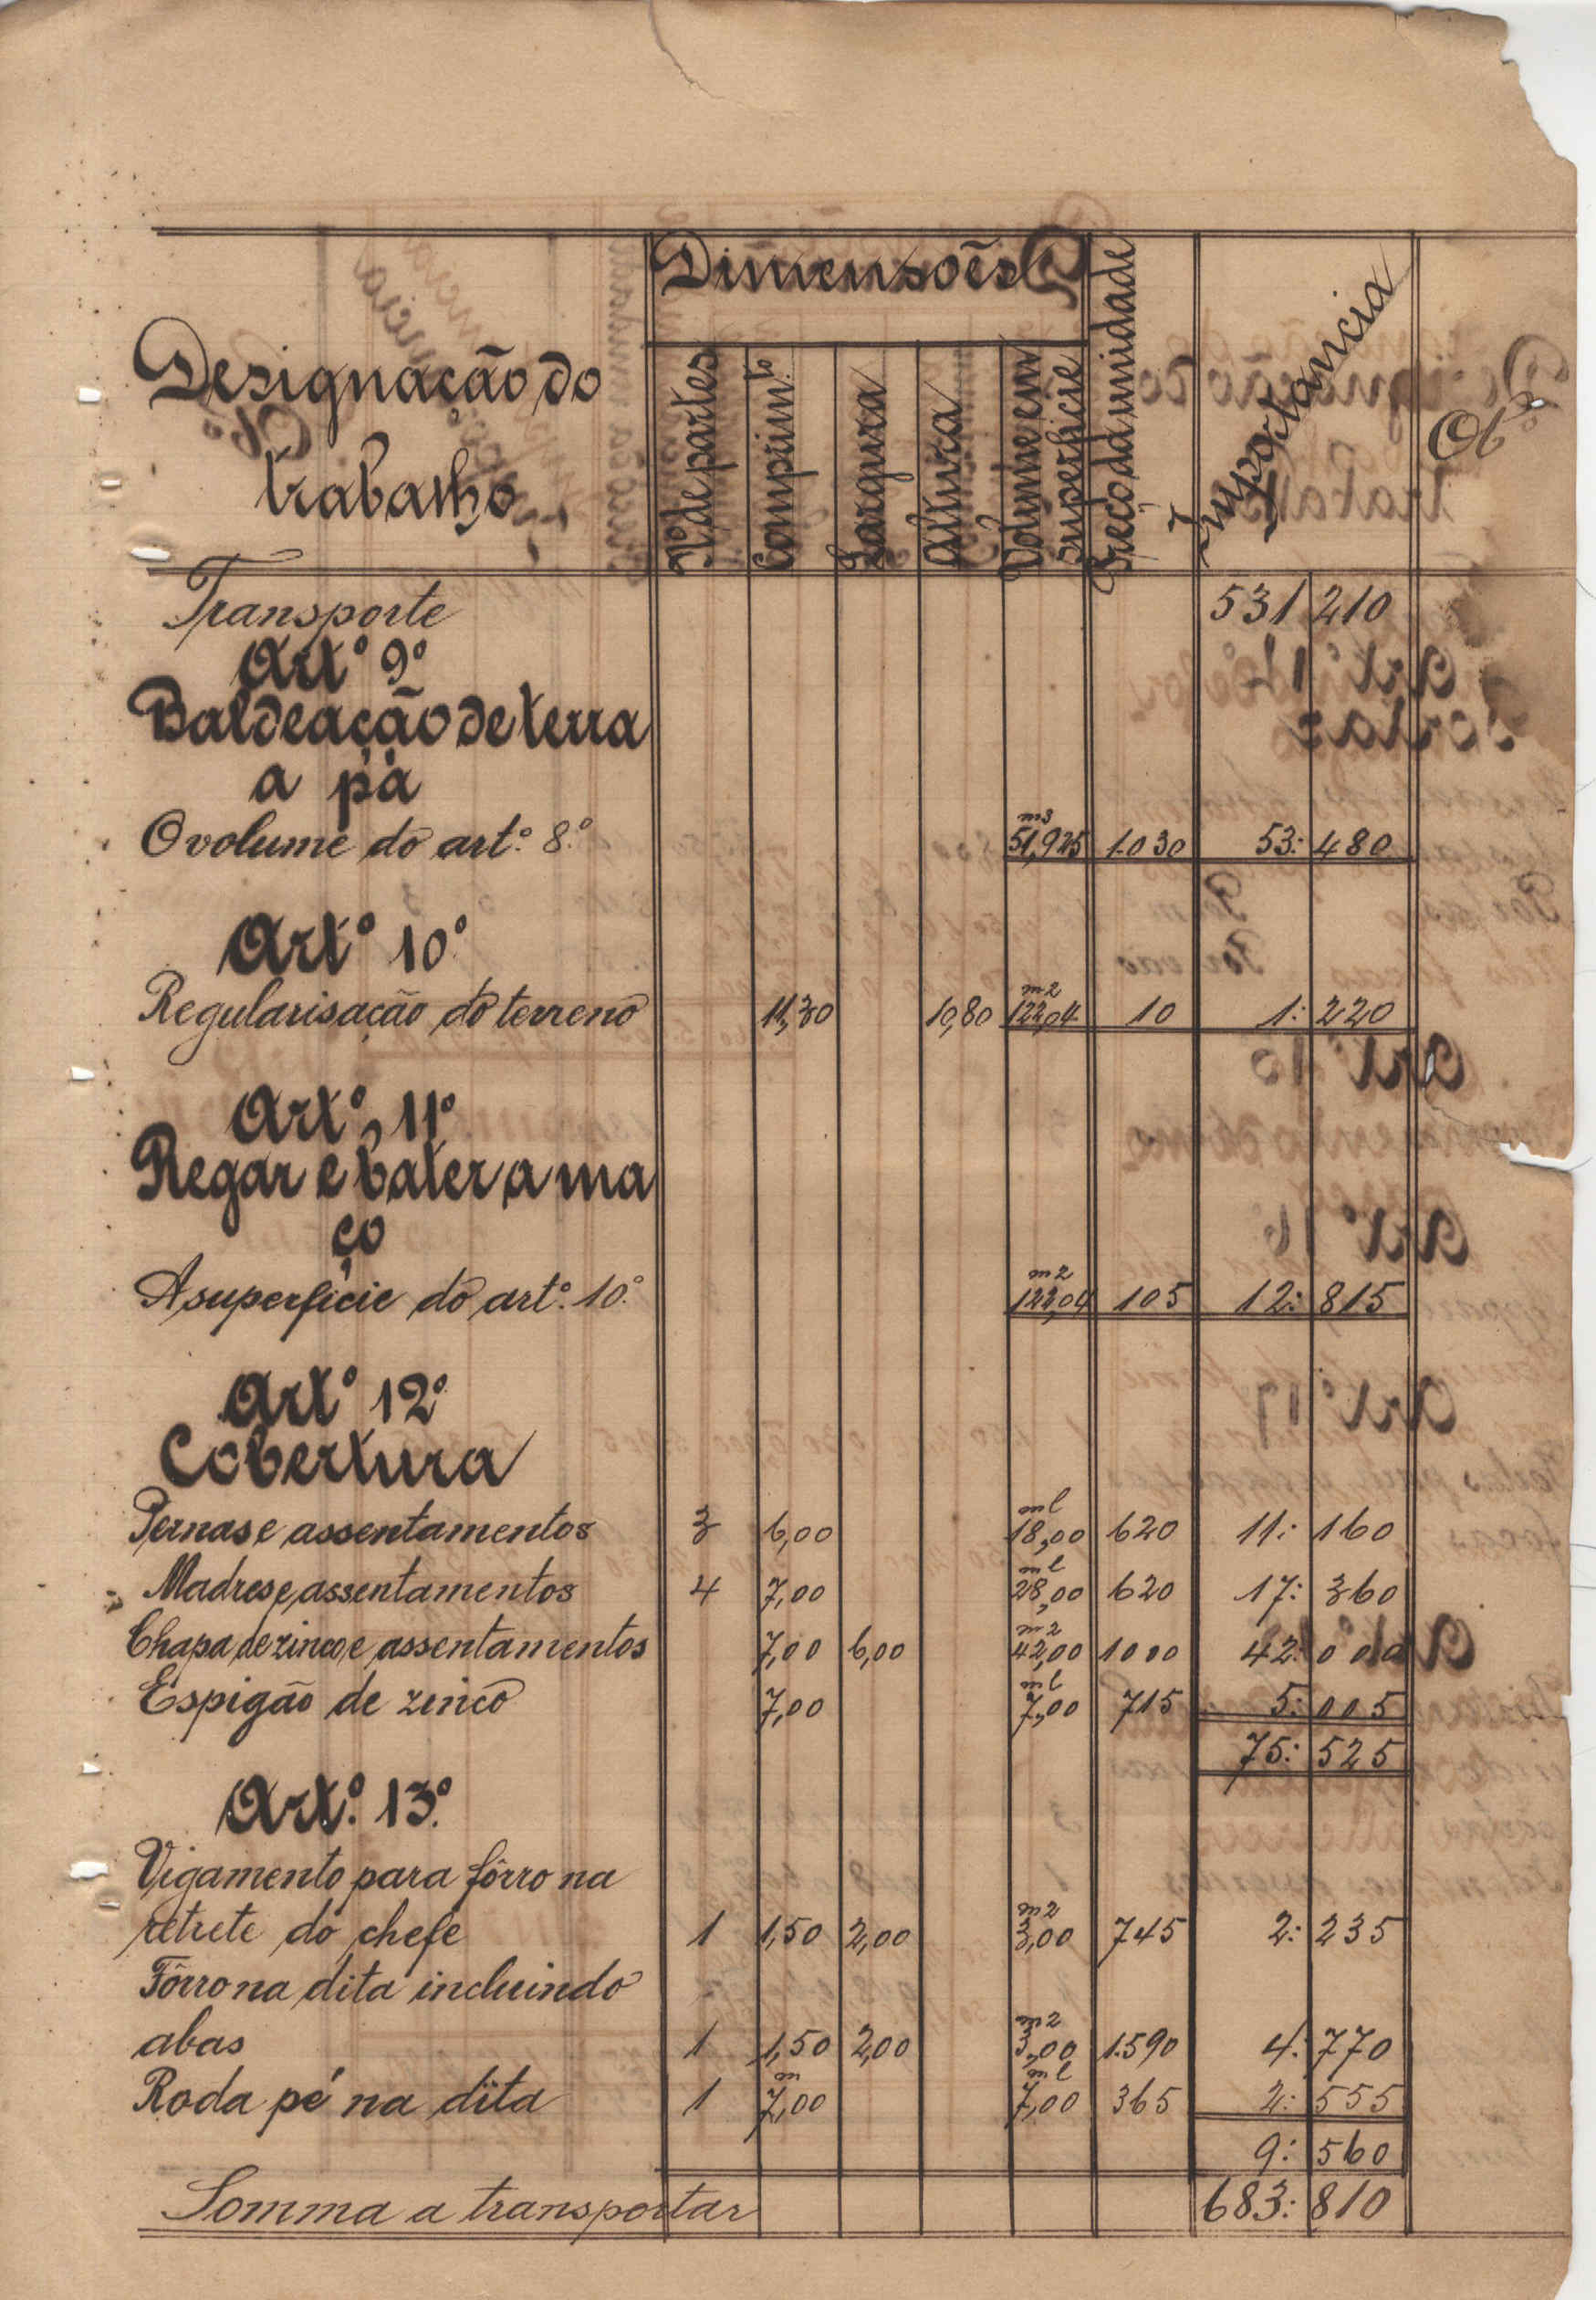 Designação do
trabalho
Dimensões
Nº de partes
Comprimto
Largura
Altura
Volume em
superficie
Preço da unidade
Importancia
Obs
Transporte 531 210
Artº 9º
Baldeação de terra
a pá
O volume do artº. 8º. m3 51,925 1.030 53: 480
Artº 10º
Regularisação do terreno 11,30 10,80 m2 122,04 10 1: 220
Artº. 11º
Regar e bater a ma
ço
A superficie do artº. 10º. m2 122,04 105 12: 815
Artº 12º
Cobertura
Pernas e assentamentos 3 6,00 ml 18,00 620 11: 160
Madres e assentamentos 4 7,00 ml 28,00 620 17: 360
Chapa de zinco e assentamentos 7,00 6,00 m2 42,00 1000 42: 000
Espigão de zinco 7,00 ml 7,00 715 5: 005
75: 525
Artº. 13º.
Vigamento para fôrro na
retrete do chefe 1 1,50 2,00 m2 3,00 745 2: 235
Fôrro na dita incluindo
abas 1 1,50 2,00 m2 3,00 1.590 4: 770
Roda pé na dita 1 m 7,00 ml 7,00 365 2: 555
9: 560
Somma a transportar 683: 810